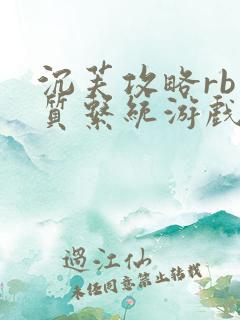 沉芙攻略rb
质系统游戏
過江仙
未经同意禁止转载